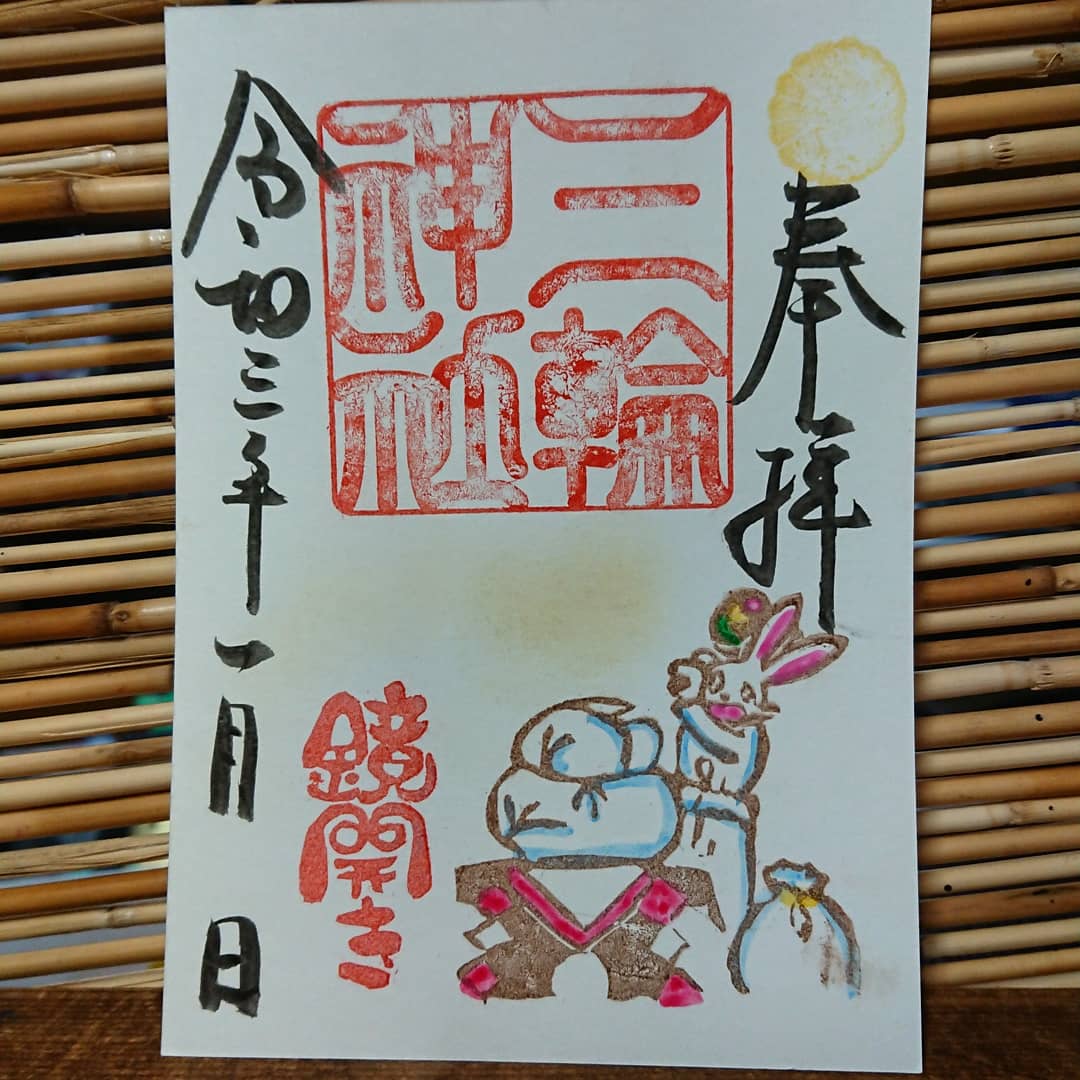 奉拝
三輪
神社
鏡開き
令和三年一月 日